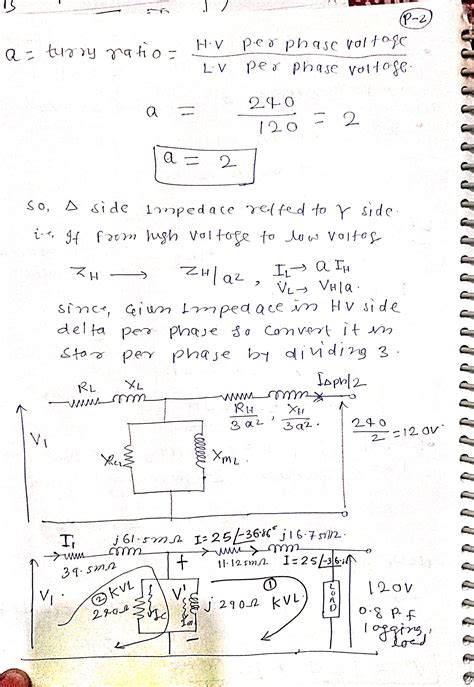 P-2
a = turny ratio = H.V per phase voltage
L.V per phase voltage.
a = 240
120 = 2
a = 2
so, Δ side Impedace reffed to Y side.
i.e, If from high voltage to low voltag
ZH → ZH/a2, IL → a IH
VL → VH/a.
since, Given Impedace in HV side
delta per phase so convert it in
star per phase by dividing 3.
RL XL RH/3a² XH/3a² IΔph/2
V1 XmL 240/2 = 120V
I1 j61.5mΩ I=25/-36.86° j16.75mΩ
39.5mΩ + 11.125mΩ I=25/-36.86
V1 ② KVL 290Ω V' j290Ω ① KVL LOAD 120V
0.8 P.f
lagging
load